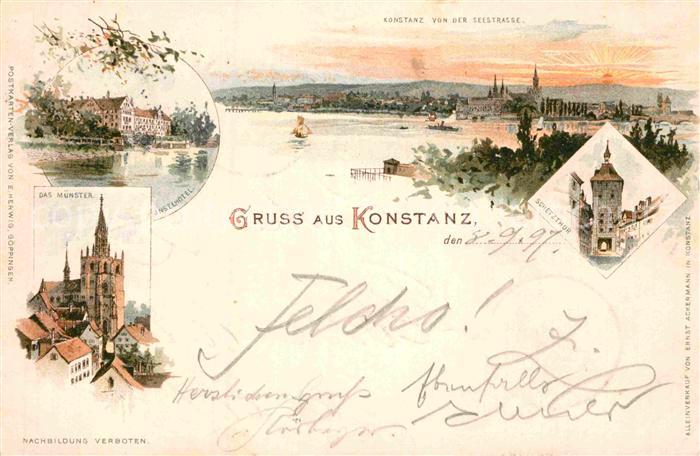 KONSTANZ VON DER SEESTRASSE.
INSELHOTEL.
DAS MÜNSTER.
SCHETZTHOR
GRUSS AUS KONSTANZ,
den 8./9. 97.
Herzlichen Gruss
Ebenfalls
NACHBILDUNG VERBOTEN.
POSTKARTEN-VERLAG VON E. HERWIG, GÖPPINGEN
ALLEINVERKAUF VON ERNST ACKERMANN IN KONSTANZ